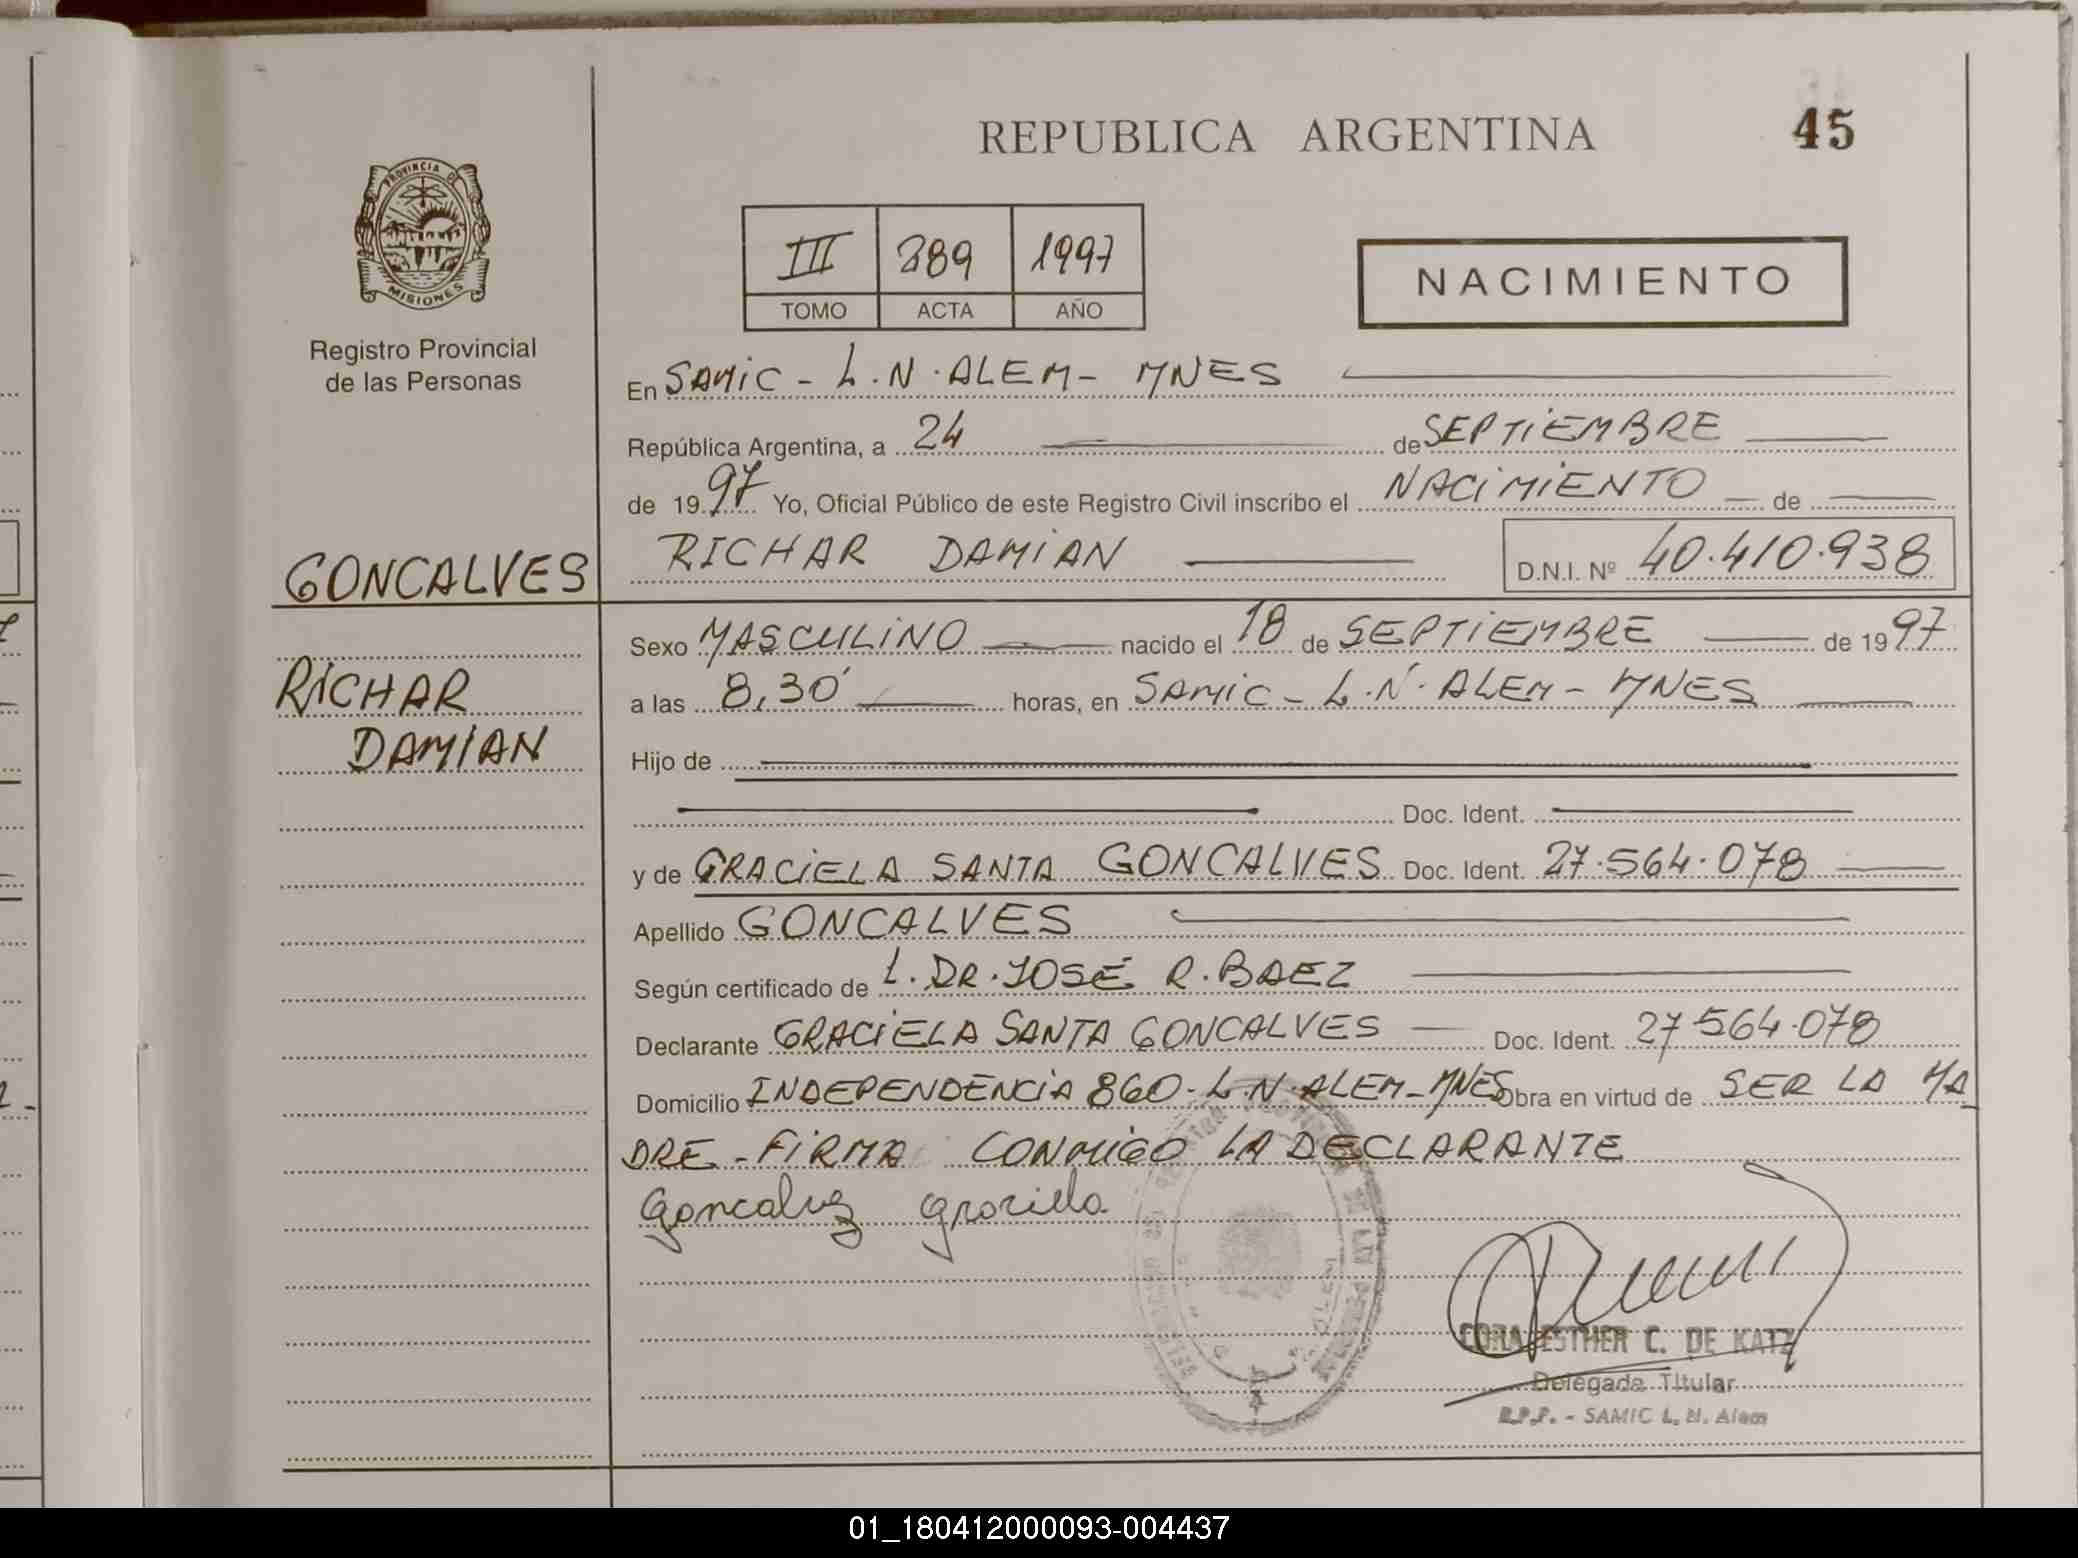 REPUBLICA ARGENTINA
45
PROVINCIA DE
MISIONES
Registro Provincial
de las Personas
III 389 1997
TOMO ACTA AÑO
NACIMIENTO
En SAMIC - L.N. ALEM - MNES
República Argentina, a 24 de SEPTIEMBRE
de 1997 Yo, Oficial Público de este Registro Civil inscribo el NACIMIENTO de
GONCALVES
RICHAR DAMIAN
D.N.I. Nº 40.410.938
RICHAR
DAMIAN
Sexo MASCULINO nacido el 18 de SEPTIEMBRE de 1997
a las 8,30 horas, en SAMIC - L.N. ALEM - MNES
Hijo de
Doc. Ident.
y de GRACIELA SANTA GONCALVES Doc. Ident. 27.564.078
Apellido GONCALVES
Según certificado de L. DR. JOSÉ R. BAEZ
Declarante GRACIELA SANTA GONCALVES Doc. Ident. 27.564.078
Domicilio INDEPENDENCIA 860 - L.N. ALEM - MNES Obra en virtud de SER LA MA
DRE - FIRMA CONMIGO LA DECLARANTE
Goncalvez Graciela
CORA ESTHER C. DE KATZ
Delegada Titular
R.P.P. - SAMIC L. N. Alem
01_180412000093-004437